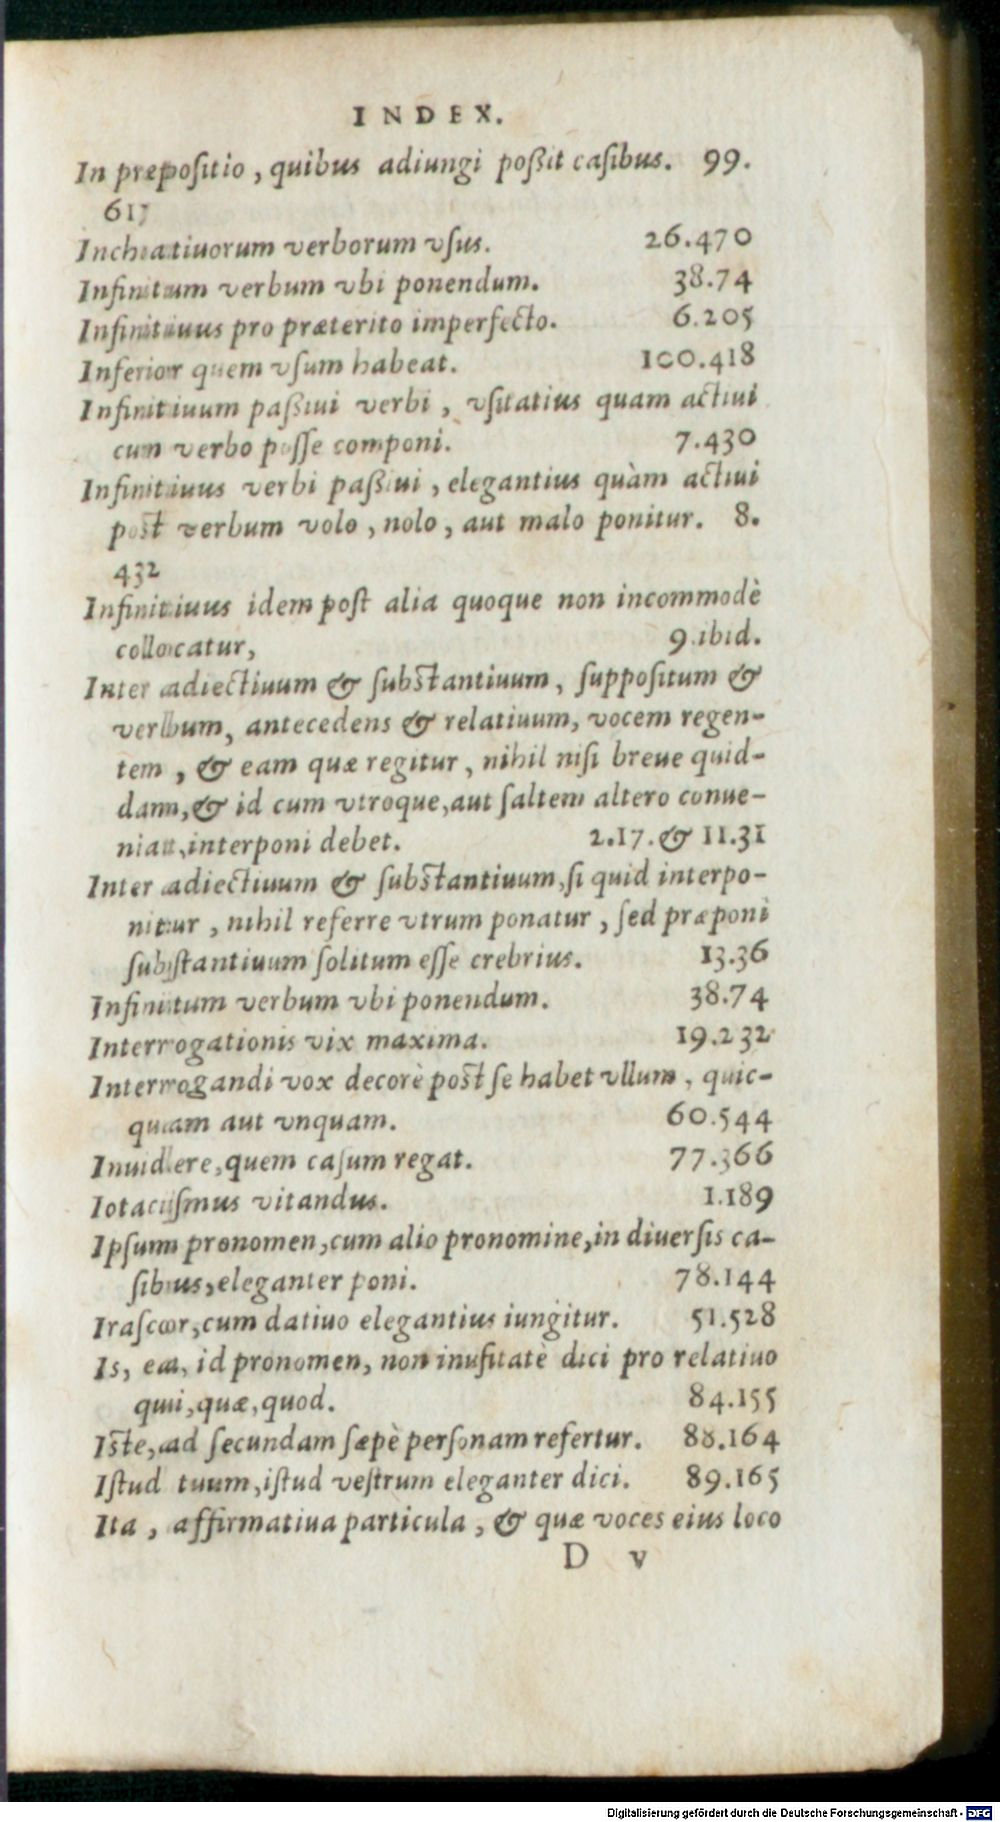 INDEX.
In præpositio, quibus adiungi poßit casibus. 99.
617
Inchoatiuorum verborum vsus. 26.470
Infinitum verbum vbi ponendum. 38.74
Infinitiuus pro præterito imperfecto. 6.205
Inferior quem vsum habeat. 100.418
Infinitiuum paßiui verbi, vsitatius quam actiui
cum verbo posse componi. 7.430
Infinitiuus verbi paßiui, elegantius quàm actiui
post verbum volo, nolo, aut malo ponitur. 8.
432
Infinitiuus idem post alia quoque non incommodè
collocatur, 9.ibid.
Inter adiectiuum & substantiuum, suppositum &
verbum, antecedens & relatiuum, vocem regen-
tem, & eam quæ regitur, nihil nisi breue quid-
dam, & id cum vtroque, aut saltem altero conue-
niat, interponi debet. 2.17. & 11.31
Inter adiectiuum & substantiuum, si quid interpo-
nitur, nihil referre vtrum ponatur, sed præponi
substantiuum solitum esse crebrius. 13.36
Infinitum verbum vbi ponendum. 38.74
Interrogationis vix maxima. 19.232
Interrogandi vox decorè post se habet vllum, quic-
quam aut vnquam. 60.544
Inuidere, quem casum regat. 77.366
Iotacismus vitandus. 1.189
Ipsum pronomen, cum alio pronomine, in diuersis ca-
sibus, eleganter poni. 78.144
Irascor, cum datiuo elegantius iungitur. 51.528
Is, ea, id pronomen, non inusitatè dici pro relatiuo
qui, quæ, quod. 84.155
Iste, ad secundam sæpè personam refertur. 88.164
Istud tuum, istud vestrum eleganter dici. 89.165
Ita, affirmatiua particula, & quæ voces eius loco
D v
Digitalisierung gefördert durch die Deutsche Forschungsgemeinschaft - DFG